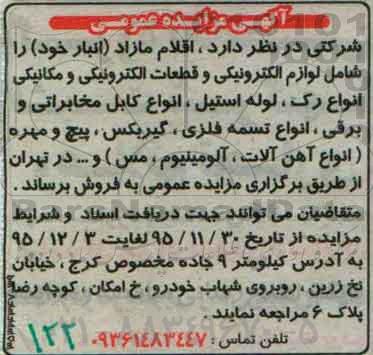 آگهی مزایده عمومی
شرکتی در نظر دارد ، اقلام مازاد (انبار خود) را
شامل لوازم الکترونیکی و قطعات الکترونیکی و مکانیکی
انواع رک ، لوله استیل ، انواع کابل مخابراتی و
برقی ، انواع تسمه فلزی ، گیربکس ، پیچ و مهره
( انواع آهن آلات ، آلومینیوم ، مس ) و... در تهران
از طریق برگزاری مزایده عمومی به فروش برساند .
متقاضیان می توانند جهت دریافت اسناد و شرایط
مزایده از تاریخ ۳۰ / ۱۱ / ۹۵ لغایت ۳ / ۱۲ / ۹۵
به آدرس کیلومتر ۹ جاده مخصوص کرج ، خیابان
نخ زرین ، روبروی شهاب خودرو ، خ امکان ، کوچه رضا
پلاک ۶ مراجعه نمایند .
تلفن تماس : ۰۹۳۶۱۴۸۳۴۴۷
۱۲۲